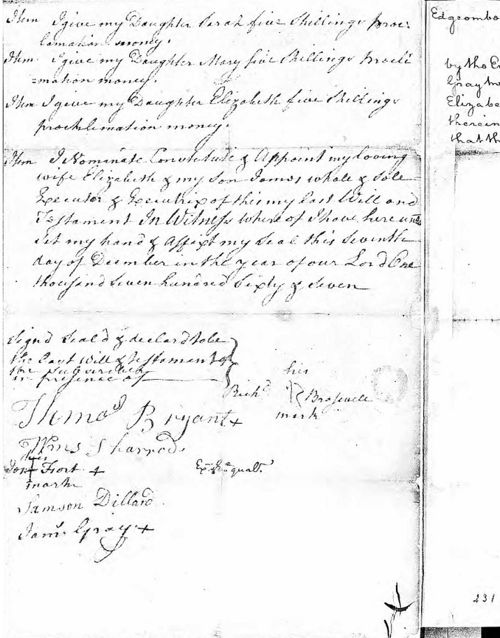 Item I give my Daughter Sarah five Shillings Proc-
lamation money.
Item I give my Daughter Mary five Shillings Procli
=mation money.
Item I give my Daughter Elizabeth five Shillings
procklimation money.
Item I Nominate Constetute & Appoint my loving
wife Elizabeth & my Son James whole & Sole
Executor & Executrix of this my last Will and
Testament In Witness where of I have here unto
Set my hand & Affext my Seal this Seventh
day of December in the year of our Lord One
thousand Seven hundred Sixty & Seven
Signd Seald & declard to be
the Last Will & testament of
in presence of
his
Richd B Braswell
mark
Thomas Bryant +
Wms Sharrod
his
Fort +
marke
Samson Dillard
Jams Gray +
Edgcombe
by the Ex
Gray
Elizabe
therein
that th
231